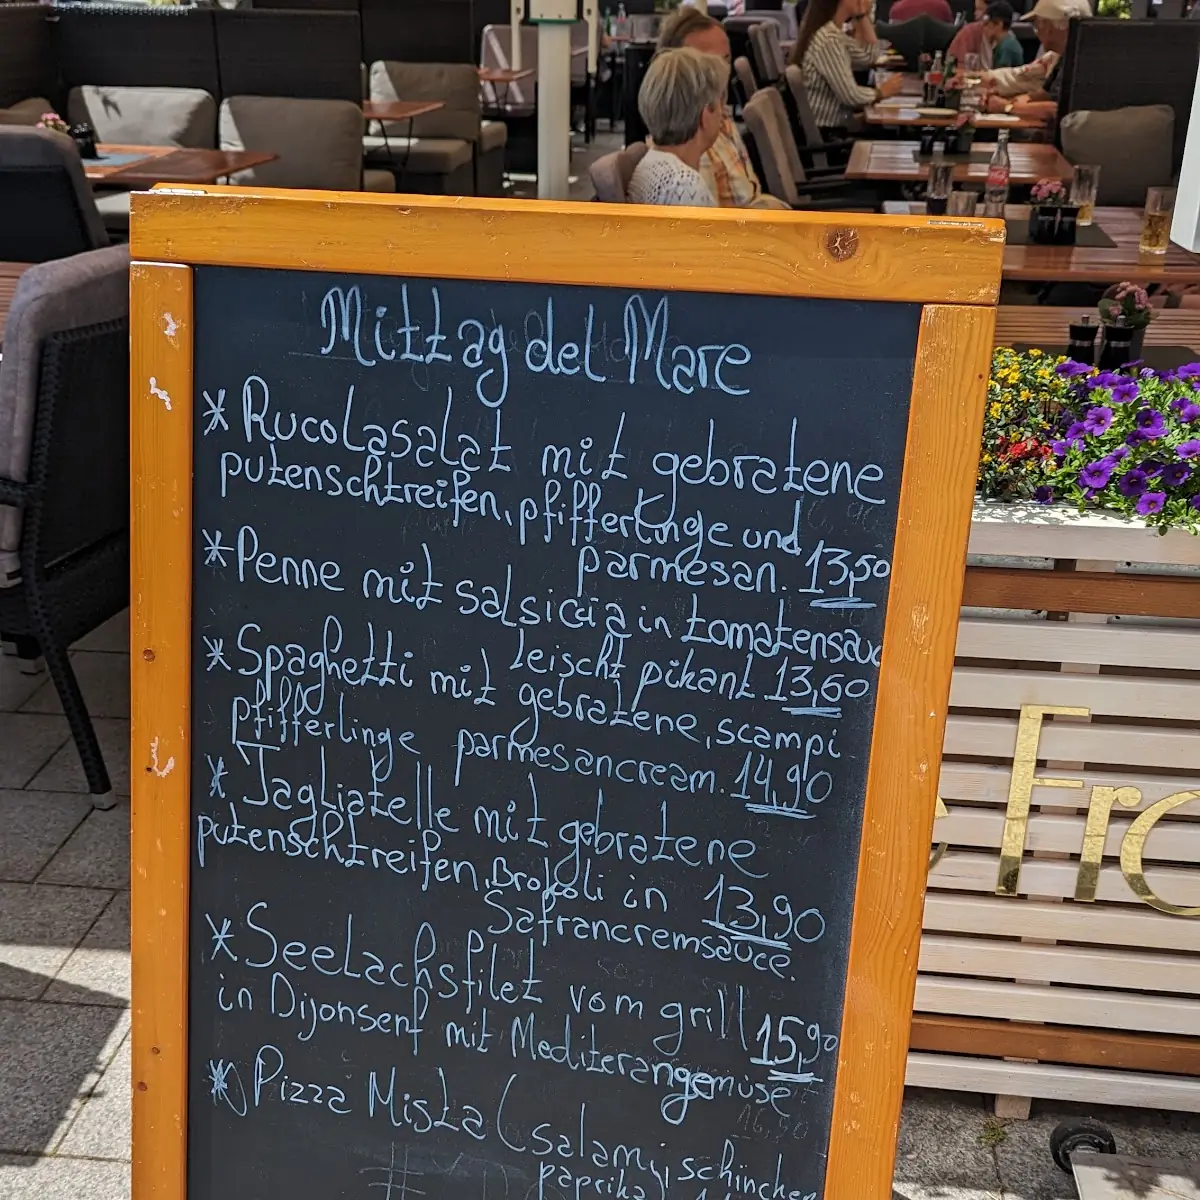 Mittag del Mare
* Rucolasalat mit gebratene
putenschtreifen, pfifferlinge und
parmesan. 13,50
* Penne mit salsiccia in tomatensauc
leischt pikant 13,60
* Spaghetti mit gebratene, scampi
pfifferlinge parmesancream. 14,90
* Tagliatelle mit gebratene
putenschtreifen, Brokoli in 13,90
Safrancremsauce.
* Seelachsfilet vom grill 15,90
in Dijonsenf mit Mediterangemüse
* Pizza Mista (salami, schinken
paprika
Fro